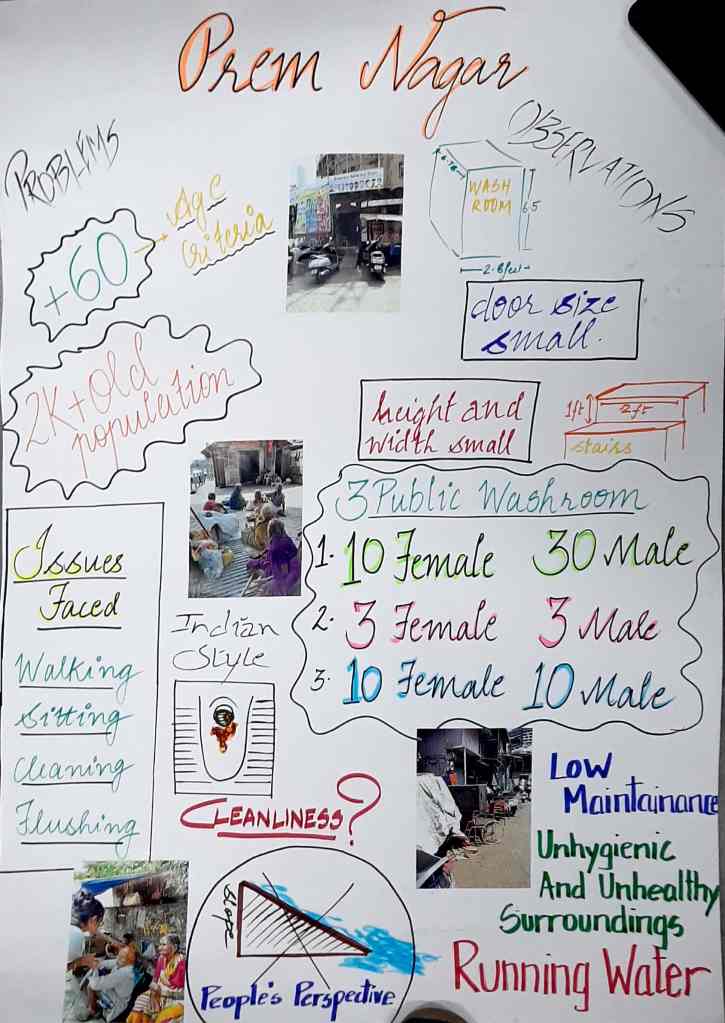 Prem Nagar
PROBLEMS
OBSERVATIONS
+60
Age
Criteria
WASH
ROOM
6.5
2.8feet
door size
small.
2K+ Old
population
height and
width small
1ft
2ft
stairs
3 Public Washroom
1. 10 Female 30 Male
2. 3 Female 3 Male
3. 10 Female 10 Male
Issues
Faced
Walking
Sitting
Cleaning
Flushing
Indian
Style
CLEANLINESS?
Low
Maintainance
Unhygienic
And Unhealthy
Surroundings
Running Water
Slope
People's Perspective